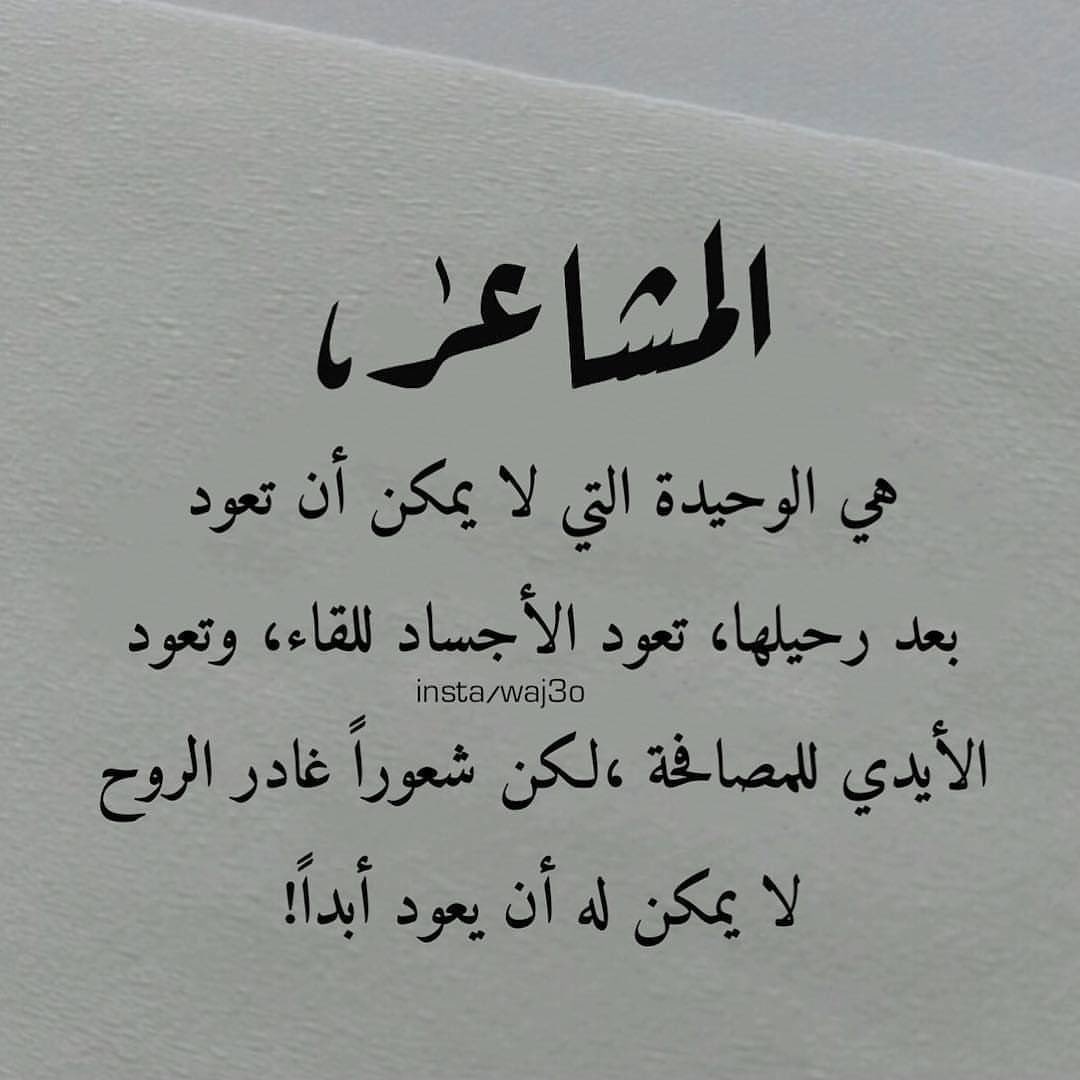 المشاعر
هي الوحيدة التي لا يمكن أن تعود
بعد رحيلها، تعود الأجساد للقاء، وتعود
insta/waj3o
الأيدي للمصافحة ،لكن شعوراً غادر الروح
لا يمكن له أن يعود أبداً!